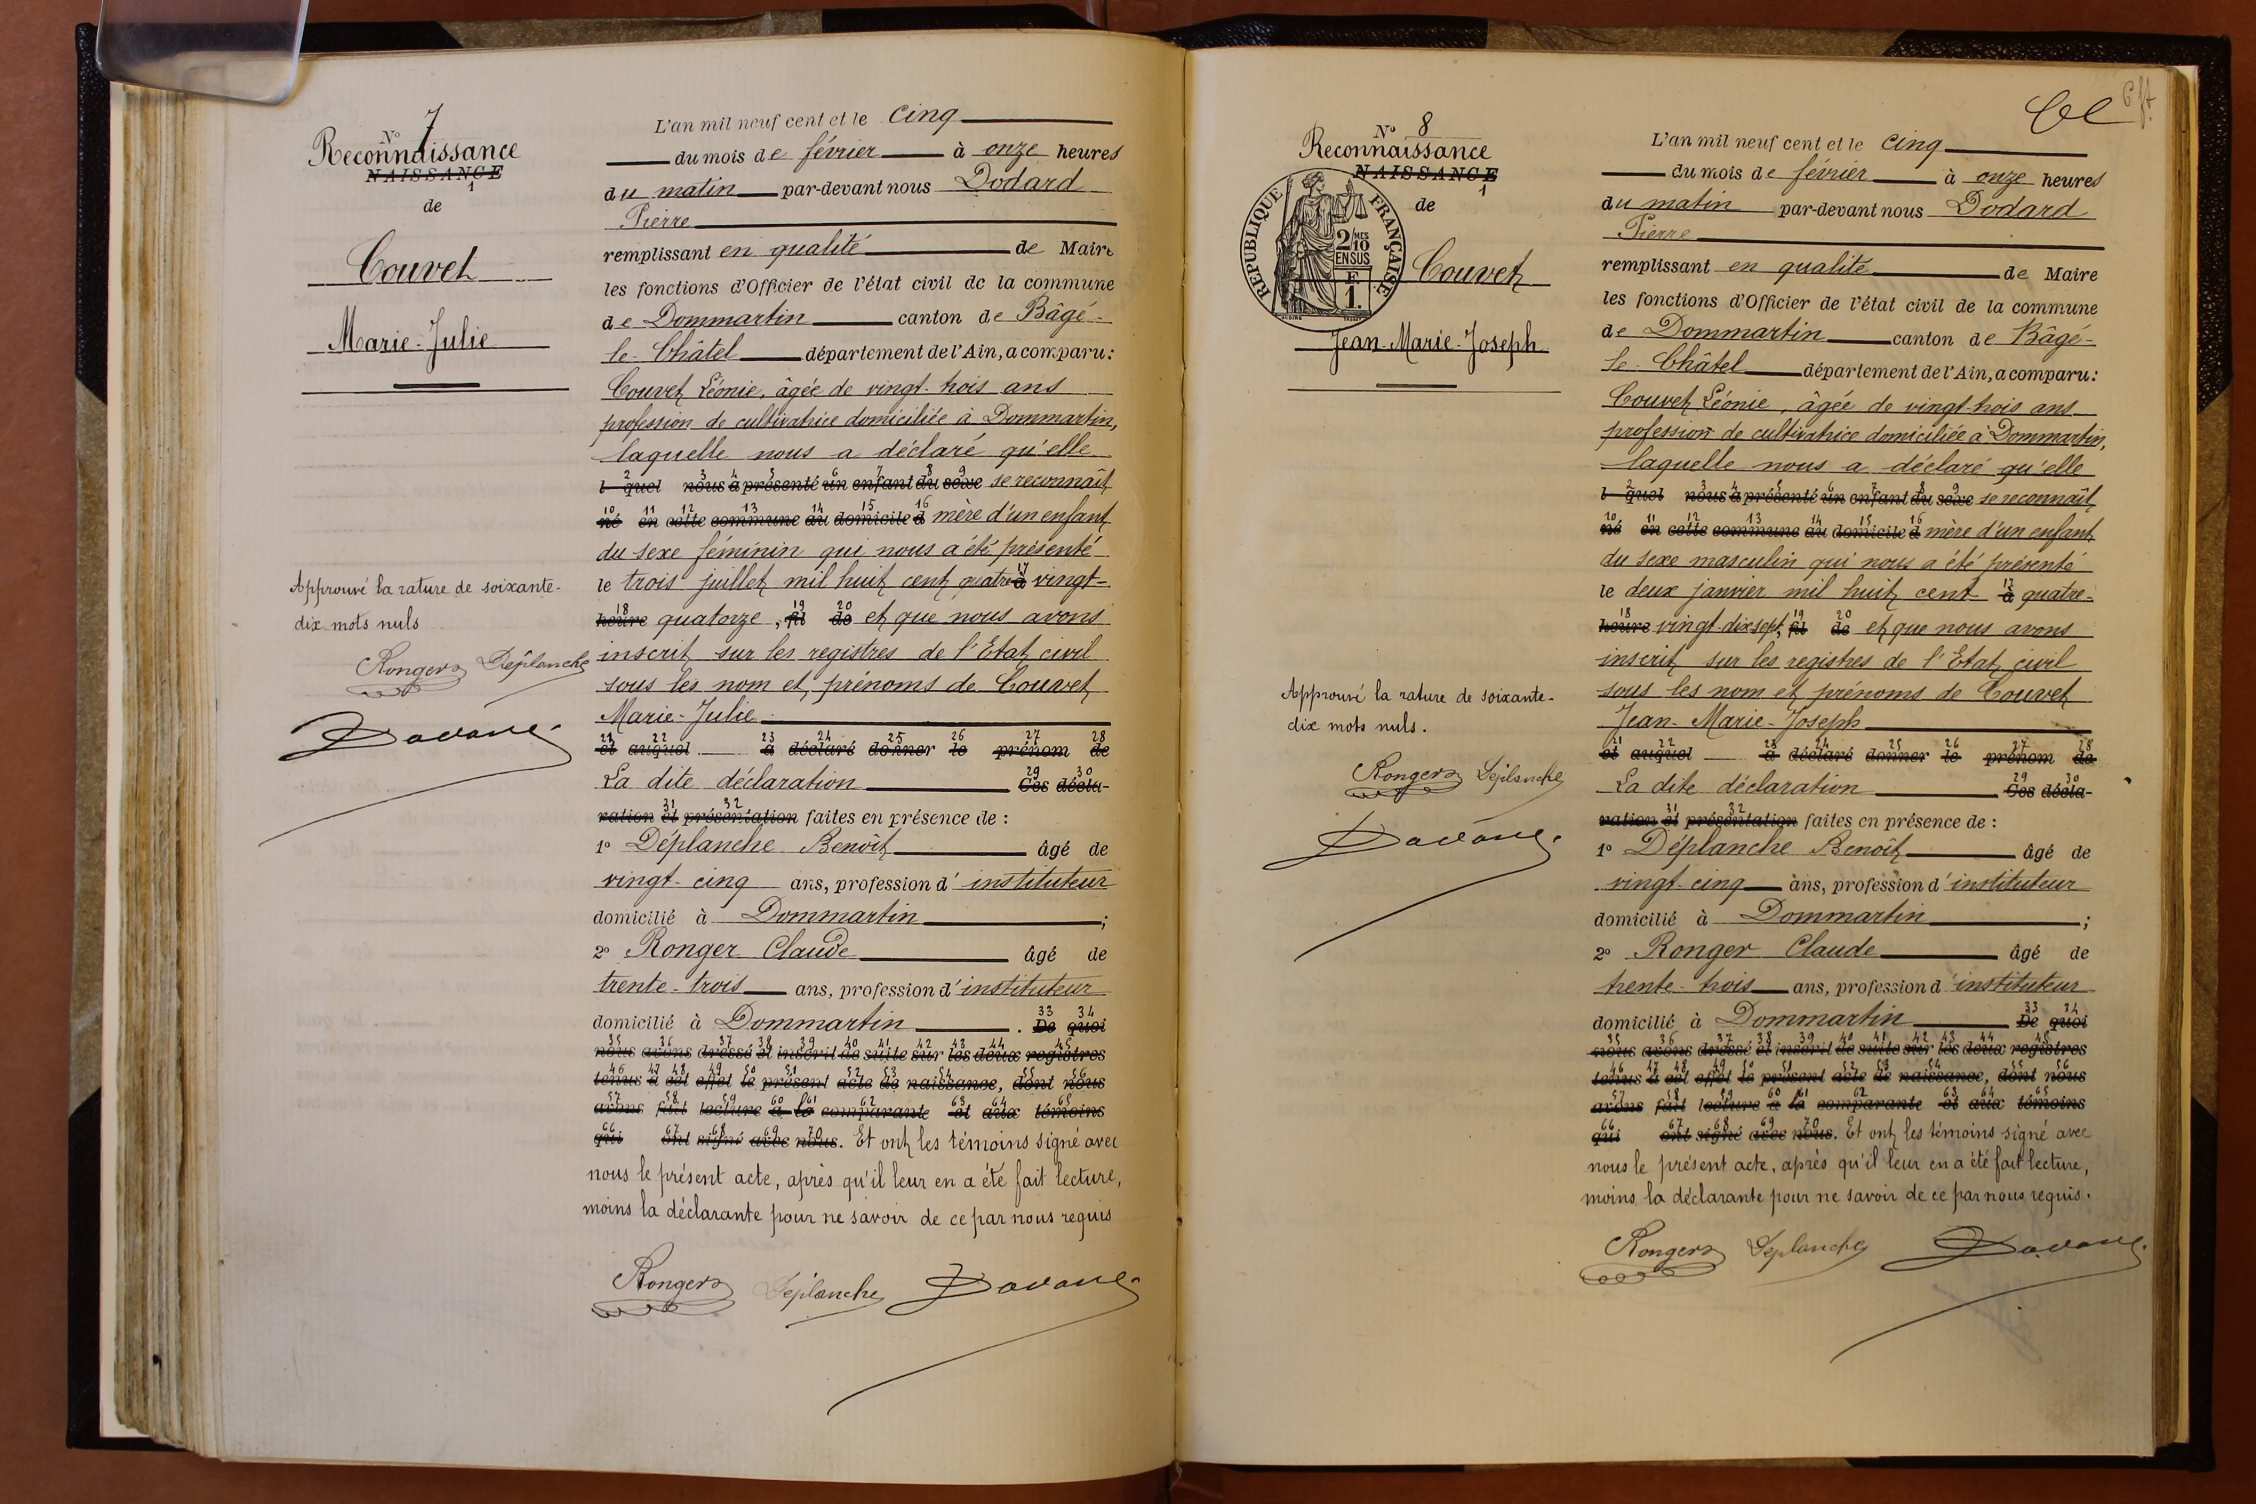 N° 7
Reconnaissance
NAISSANCE
1
de
Couvet
Marie-Julie
Approuvé la rature de soixante-
dix mots nuls
Rongers Déplanche
L'an mil neuf cent et le cinq
du mois de février à onze heures
du matin par-devant nous Dodard
Pierre
remplissant en qualité de Maire
les fonctions d'Officier de l'état civil de la commune
de Dommartin canton de Bâgé-
le-Châtel département de l'Ain, a comparu:
Couvet Léonie, âgée de vingt-trois ans
profession de cultivatrice domiciliée à Dommartin,
laquelle nous a déclaré qu'elle
2 3 4 5 6 7 8 9
l quel nous a présenté un enfant du sexe se reconnaît
10 11 12 13 14 15 16
né en cette commune au domicile d mère d'un enfant
du sexe féminin qui nous a été présenté
17
le trois juillet mil huit cent quatre à vingt-
18 19 20
heure quatorze, fil de et que nous avons
inscrit sur les registres de l'Etat civil
sous les nom et prénoms de Couvet
Marie-Julie
21 22 23 24 25 26 27 28
et auquel a déclaré donner le prénom de
29 30
La dite déclaration Ces décla-
31 32
ration et présentation faites en présence de :
1° Déplanche Benoît âgé de
vingt-cinq ans, profession d'instituteur
domicilié à Dommartin ;
2° Ronger Claude âgé de
trente-trois ans, profession d'instituteur
33 34
domicilié à Dommartin . De quoi
35 36 37 38 39 40 41 42 43 44 45
nous avons dressé et inscrit de suite sur les deux registres
46 47 48 49 50 51 52 53 54 55 56
tenus à cet effet le présent acte de naissance, dont nous
57 58 59 60 61 62 63 64 65
avons fait lecture à la comparante et aux témoins
66 67 68 69 70
qui ont signé avec nous. Et ont les témoins signé avec
nous le présent acte, après qu'il leur en a été fait lecture,
moins la déclarante pour ne savoir de ce par nous requis
Rongers Déplanche
N° 8
Reconnaissance
NAISSANCE
1
de
RÉPUBLIQUE FRANÇAISE
2/MES
10
EN SUS
F
1.
Couvet
Jean-Marie-Joseph
Approuvé la rature de soixante-
dix mots nuls.
Rongers Déplanche
L'an mil neuf cent et le cinq
du mois de février à onze heures
du matin par-devant nous Dodard
Pierre
remplissant en qualité de Maire
les fonctions d'Officier de l'état civil de la commune
de Dommartin canton de Bâgé-
le-Châtel département de l'Ain, a comparu:
Couvet Léonie, âgée de vingt-trois ans
profession de cultivatrice domiciliée à Dommartin,
laquelle nous a déclaré qu'elle
2 3 4 5 6 7 8 9
l quel nous a présenté un enfant du sexe se reconnaît
10 11 12 13 14 15 16
né en cette commune au domicile d mère d'un enfant
du sexe masculin qui nous a été présenté
17
le deux janvier mil huit cent à quatre-
18 19 20
heure vingt-dix sept, fil de et que nous avons
inscrit sur les registres de l'Etat civil
sous les nom et prénoms de Couvet
Jean-Marie-Joseph
21 22 23 24 25 26 27 28
et auquel a déclaré donner le prénom de
29 30
La dite déclaration Ces décla-
31 32
ration et présentation faites en présence de :
1° Déplanche Benoît âgé de
vingt-cinq ans, profession d'instituteur
domicilié à Dommartin ;
2° Ronger Claude âgé de
trente-trois ans, profession d'instituteur
33 34
domicilié à Dommartin De quoi
35 36 37 38 39 40 41 42 43 44 45
nous avons dressé et inscrit de suite sur les deux registres
46 47 48 49 50 51 52 53 54 55 56
tenus à cet effet le présent acte de naissance, dont nous
57 58 59 60 61 62 63 64 65
avons fait lecture à la comparante et aux témoins
66 67 68 69 70
qui ont signé avec nous. Et ont les témoins signé avec
nous le présent acte, après qu'il leur en a été fait lecture,
moins la déclarante pour ne savoir de ce par nous requis.
Rongers Déplanche